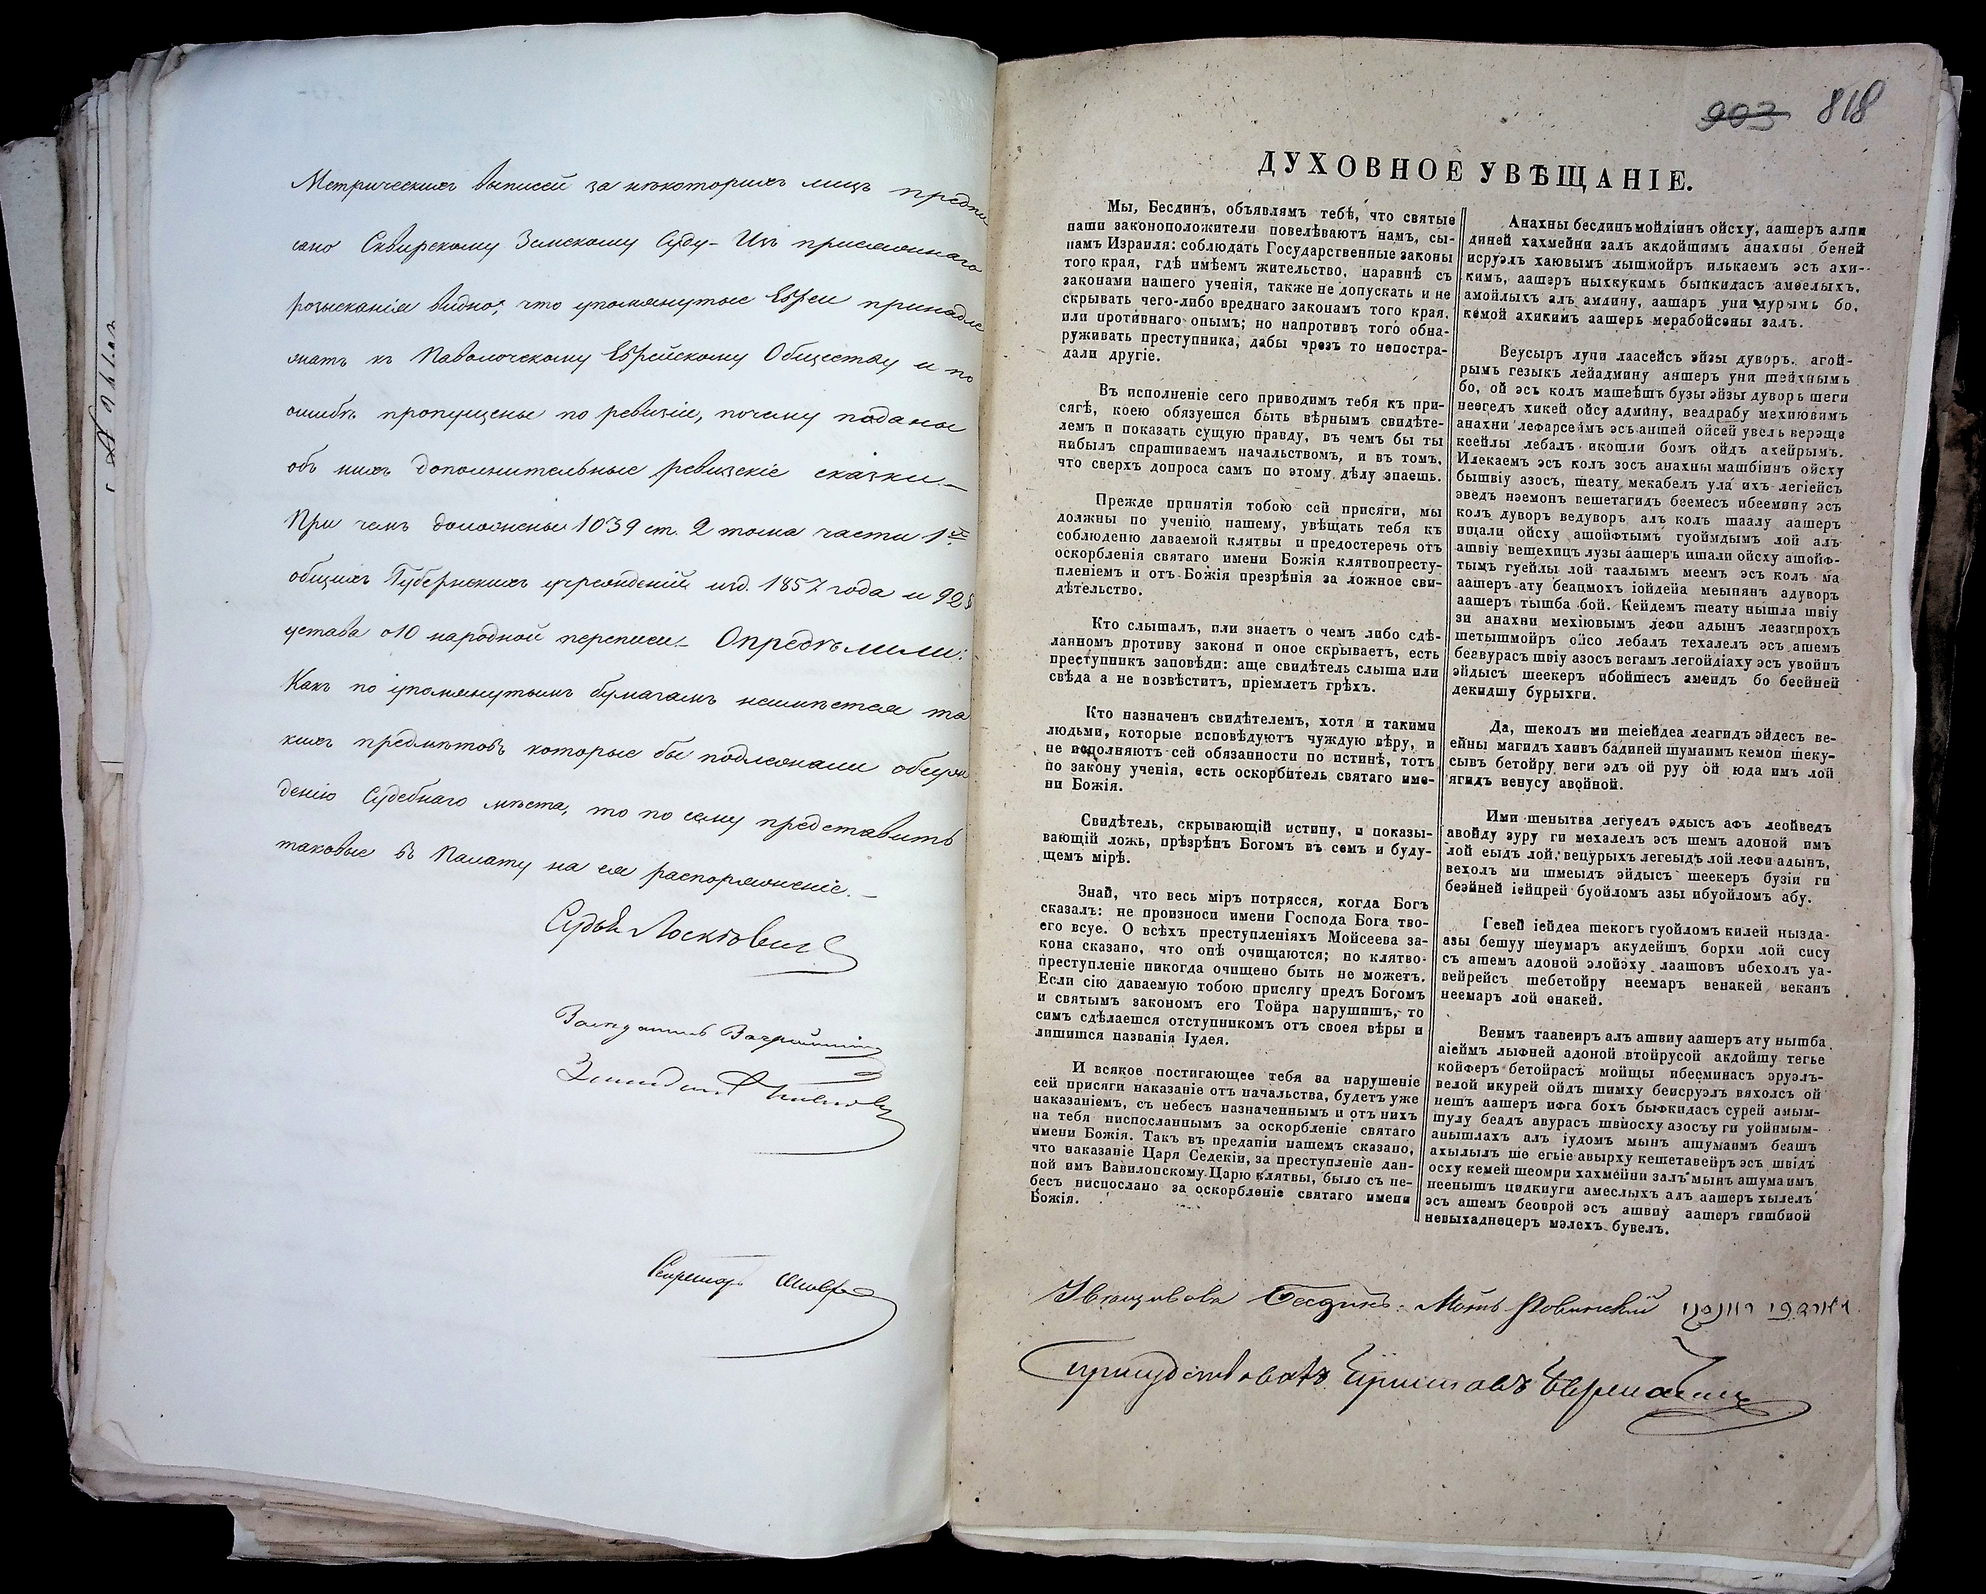 Метрическихъ выписей за некоторихъ лицъ предпи
сано Сквирскому Земскому Суду - Изъ присяжнаго
розысканія видно, что упомянутые Евреи принадле
жатъ къ Паволочскому Еврейскому Обществу и по
ошибкѣ пропущены по ревизіи, почему поданы
объ нихъ дополнительные ревизскіе сказки. —
При чемъ доложены 1039 ст. 2 тома части 1й
общихъ Губернскихъ учрежденій изд. 1857 года и 92 §
устава о 10 народной переписи. - Опредѣлили:
Какъ по упомянутымъ бумагамъ неимѣется та
кихъ предмѣтовъ которые бы подлежали обсуж
денію Судебнаго мѣста, то по сему представить
таковые въ Палату на ея распоряженіе. —
Судья
Секретарь
903 818
ДУХОВНОЕ УВѢЩАНІЕ.
Мы, Бесдинъ, объявлямъ тебѣ, что святые
наши законоположители повелѣваютъ намъ, сы-
намъ Израиля: соблюдать Государственные законы
того края, гдѣ имѣемъ жительство, наравнѣ съ
законами нашего ученія, также не допускать и не
скрывать чего-либо вреднаго законамъ того края,
или противнаго онымъ; но напротивъ того обна-
руживать преступника, дабы чрезъ то непостра-
дали другіе.
Въ исполненіе сего приводимъ тебя къ при-
сягѣ, коею обязуешся быть вѣрнымъ свидѣте-
лемъ и показать сущую правду, въ чемъ бы ты
нибылъ спрашиваемъ начальствомъ, и въ томъ,
что сверхъ допроса самъ по этому дѣлу знаешь.
Прежде принятія тобою сей присяги, мы
должны по ученію нашему, увѣщать тебя къ
соблюденю даваемой клятвы и предостеречь отъ
оскорбленія святаго имени Божія клятвопресту-
пленіемъ и отъ Божія презрѣнія за ложное сви-
дѣтельство.
Кто слышалъ, или знаетъ о чемъ либо сдѣ-
ланномъ противу закона и оное скрываетъ, есть
преступникъ заповѣди: аще свидѣтель слыша или
свѣда а не возвѣститъ, пріемлетъ грѣхъ.
Кто назначенъ свидѣтелемъ, хотя и такими
людьми, которые исповѣдуютъ чуждую вѣру, и
не исполняютъ сей обязанности по истинѣ, тотъ
по закону ученія, есть оскорбитель святаго име-
ни Божія.
Свидѣтель, скрывающій истину, и показы-
вающій ложь, прѣзрѣнъ Богомъ въ семъ и буду-
щемъ мірѣ.
Знай, что весь міръ потрясся, когда Богъ
сказалъ: не произноси имени Господа Бога тво-
его всуе. О всѣхъ преступленіяхъ Мойсеева за-
кона сказано, что онѣ очищаются; но клятво-
преступленіе никогда очищено быть не можетъ.
Если сію даваемую тобою присягу предъ Богомъ
и святымъ закономъ его Тойра нарушишъ, то
симъ сдѣлаешся отступникомъ отъ своея вѣры и
лишишся названія Іудея.
И всякое постигающее тебя за нарушеніе
сей присяги наказаніе отъ начальства, будетъ уже
наказаніемъ, съ небесъ назначеннымъ и отъ нихъ
на тебя ниспосланнымъ за оскорбленіе святаго
имени Божія. Такъ въ преданіи нашемъ сказано,
что наказаніе Царя Седекіи, за преступленіе дан-
ной имъ Вавилонскому Царю клятвы, было съ не-
бесъ ниспослано за оскорбленіе святаго имени
Божія.
Анахны бесдинъ мойдіинъ ойсху, аашеръ алпи
диней хахмейни залъ акдойшимъ анахны беней
исруэлъ хаювымъ лышмойръ илькаемъ эсъ ахи-
кимъ, аашеръ ныхкукимъ быпкидасъ амеелыхъ,
амойлыхъ алъ амдину, аашаръ уни мурымъ бо,
кемой ахикимъ аашеръ мерабойсены залъ.
Веусыръ лупи лаасейсъ эйзы дуворъ. агой-
рымъ гезыкъ лейадмину аяшеръ уни шейхнымъ
бо, ой эсъ колъ машеѣшъ бузы эйзы дуворъ шеги
неегедъ хикей ойсу админу, веадрабу мехиювимъ
анахни лефарсеімъ эсъ аншей ойсей увелъ вераще
кеейлы лебалъ икошли бомъ ойдъ ахейрымъ.
Илекаемъ эсъ колъ зосъ анахны машбіинъ ойсху
бышвіу азосъ, шеату мекабелъ ула ихъ легіейсъ
эведъ нэемонъ вешетагидъ беемесъ ибеемину эсъ
колъ дуворъ ведуворъ, алъ колъ шаалу аашеръ
ишали ойсху ашойфтымъ гуоймдымъ лой алъ
ашвіу вешехицъ лузы аашеръ ишали ойсху ашойф-
тымъ гуейлы лой таалымъ меемъ эсъ колъ ма
аашеръ ату беацмохъ іойдейа меынянъ адуворъ
аашеръ тышба бой. Кейдемъ шеату нышла швіу
зи анахни мехіювымъ лефи адынъ леазгирохъ
шетышмойръ ойсо лебалъ техалелъ эсъ ашемъ
беавурасъ швіу азосъ вегамъ легойдіаху эсъ увойнъ
эйдысъ шеекеръ ибойшесъ амеидъ бо беейней
декидшу бурыхги.
Да, шеколъ ми шеіейдеа леагидъ эйдесъ ве-
ейны магидъ хаивъ бадиней шумаимъ кемои шеку-
сывъ бетойру веги эдъ ой руу ой юда имъ лой
ягидъ венусу авойной.
Ими шенытва легуедъ эдысъ афъ леойведъ
авойду зуру ги мехалелъ эсъ шемъ адоной имъ
лой еыдъ лой, вецурыхъ легеыдъ лой лефи адынъ,
вехолъ ми шмеыдъ эйдысъ шеекеръ бузіи ги
беэйней іейцрей буойломъ азы ибуойломъ абу.
Гевей іейдеа шекогъ гуойломъ килей нызда-
азы бешуу шеумаръ акудейшъ борхи лой сису
съ ашемъ адоной элойэху лаашовъ ибехолъ уа-
вейрейсъ шебетойру неемаръ венакей веканъ
неемаръ лой енакей.
Веимъ таавеиръ алъ ашвиу аашеръ ату нышба
аіеймъ лыфней адоной втойрусой акдойшу тегье
койферъ бетойрасъ мойщы ибееминасъ эруэлъ-
велой икурей ойдъ шимху беисруэлъ вяхолсъ ой
нешъ аашеръ ифга бохъ быфкидасъ сурей амым-
шулу беадъ авурасъ швіюсху азосъу ги уойнмым-
анышлахъ алъ іудомъ мынъ ашумаимъ беашъ
ахылылъ ше егьіе авырху кешетавейръ эсъ швідъ
осху кемей шеомри хахмейни залъ мынъ ашумаимъ
нееныщъ цидкиуги амеслыхъ алъ аашеръ хылелъ
эсъ ашемъ беоврой эсъ ашвиу аашеръ гишбиой
невыхаднецеръ мэлехъ бувелъ.
Увѣщивова Бесдинъ. Мошъ Ровинскій
Присудствовалъ Приставъ